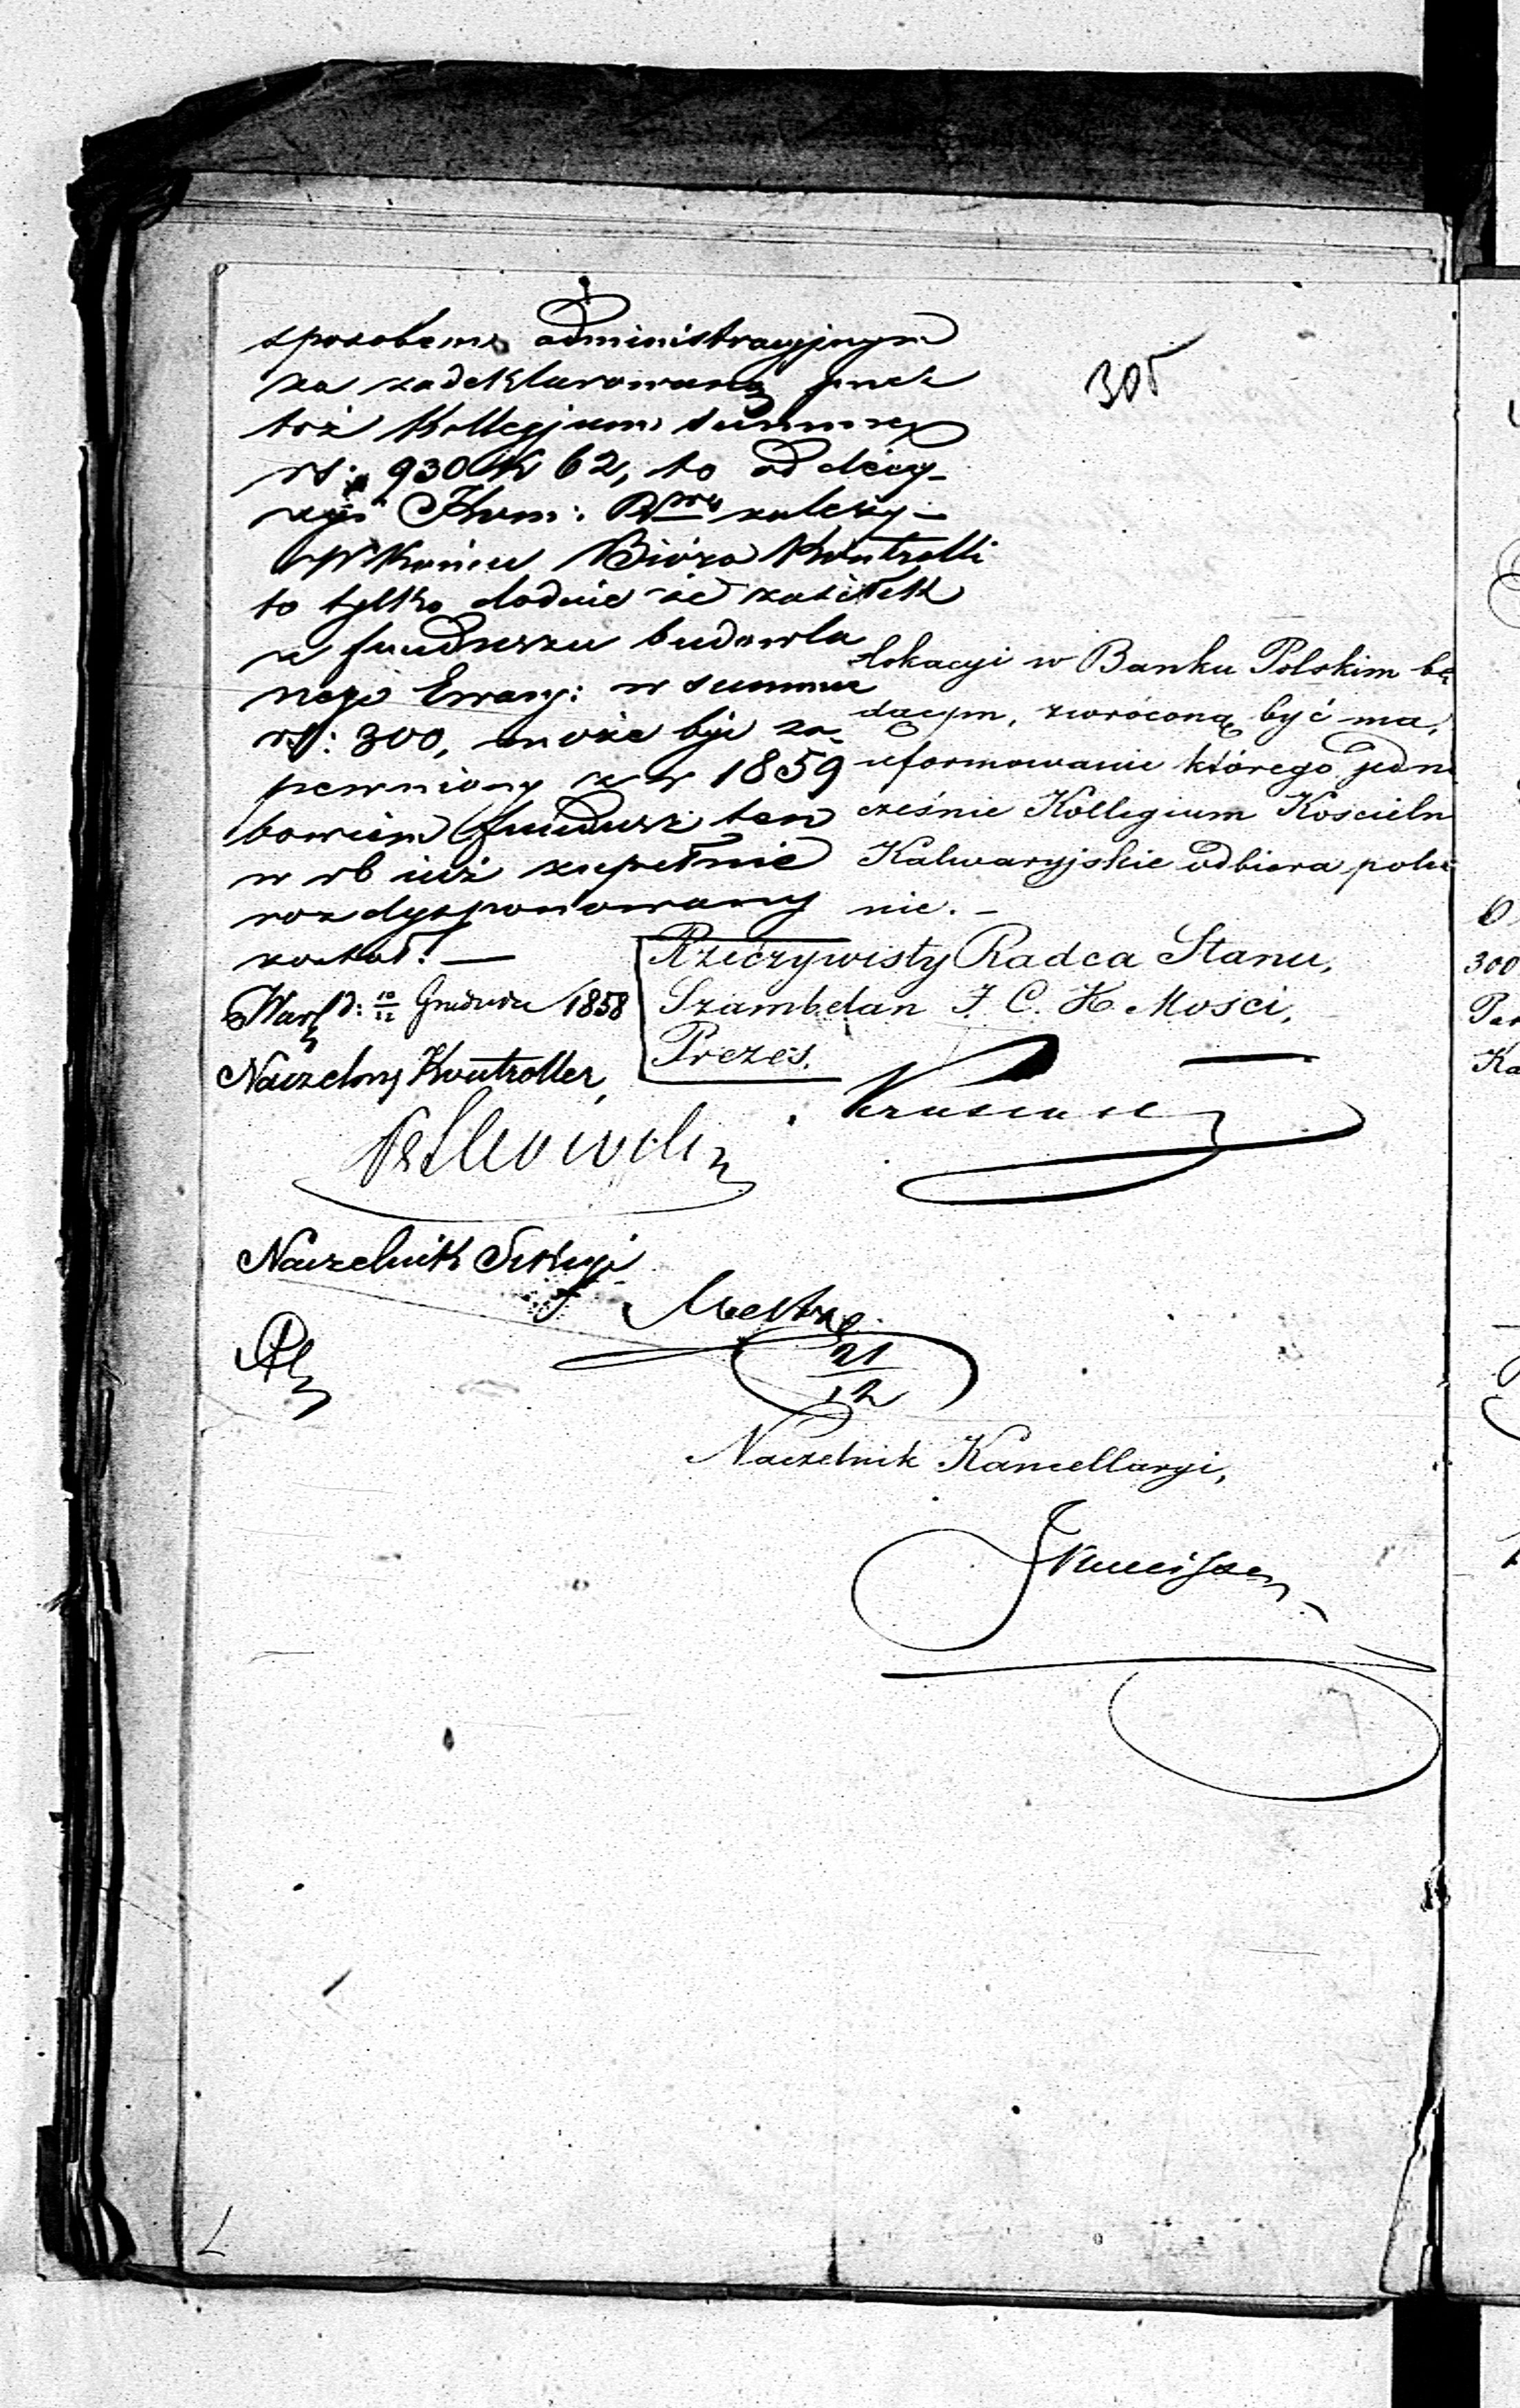 305
sposobem administracyjnym
za zadeklarowaną przez
toż Kollegjum summę
rs: 930 k 62, to od decy-
zyi Kom: Rząd należy –
W końcu Bióro Kontrolli
to tylko dodaie że zasiłek
z funduszu budowla
nego Ewang: w summie
rs: 300, może być za-
pewniony z r 1859
bowiem fundusz ten
w rb już zupełnie
rozdysponowany
został! —
Wars d: 10/12 Grudnia 1858
Naczelny Kontroller,
Naczelnik Sekcyi
lokacyi w Banku Polskim bę
dącym, zwróconą być ma,
uformowanie którego jedno
cześnie Kollegium Kościeln
Kalwaryjskie odbiera pole
nie. –
Rzeczywisty Radca Stanu,
Szambelan J. C. K. Mości,
Prezes.
21/12
Naczelnik Kancellaryi,